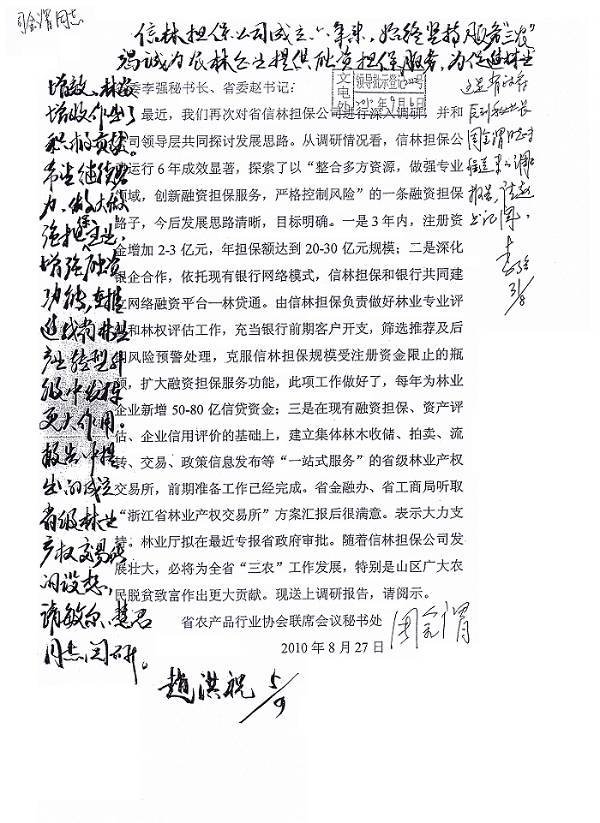 金渭同志
信林担保公司成立六年来，始终坚持服务“三农”
竭诚为农林企业提供融资担保服务，为促进林业
增效、林农
增收作出了
积极的贡献。
希望继续努
力，做大做
强担保主业，
增强融资
功能，在推
进我省林业
产业转型升
级中发挥
更大作用。
报告中提
出的成立
省级林业
产权交易所
的设想，
请敏尔、慧君
同志阅研。
赵洪祝 5/9
文电处
领导批示登记
2010年9月6日
委李强秘书长、省委赵书记：
最近，我们再次对省信林担保公司进行深入调研，并和
司领导层共同探讨发展思路。从调研情况看，信林担保公
运行6年成效显著，探索了以“整合多方资源，做强专业
领域，创新融资担保服务，严格控制风险”的一条融资担保
路子，今后发展思路清晰，目标明确。一是3年内，注册资
金增加2-3亿元，年担保额达到20-30亿元规模；二是深化
银企合作，依托现有银行网络模式，信林担保和银行共同建
立网络融资平台—林贷通。由信林担保负责做好林业专业评
和林权评估工作，充当银行前期客户开支，筛选推荐及后
风险预警处理，克服信林担保规模受注册资金限止的瓶
颈，扩大融资担保服务功能，此项工作做好了，每年为林业
企业新增50-80亿信贷资金；三是在现有融资担保、资产评
估、企业信用评价的基础上，建立集体林木收储、拍卖、流
转、交易、政策信息发布等“一站式服务”的省级林业产权
交易所，前期准备工作已经完成。省金融办、省工商局听取
“浙江省林业产权交易所”方案汇报后很满意。表示大力支
持。林业厅拟在最近专报省政府审批。随着信林担保公司发
展壮大，必将为全省“三农”工作发展，特别是山区广大农
民脱贫致富作出更大贡献。现送上调研报告，请阅示。
省农产品行业协会联席会议秘书处
2010年8月27日
周金渭
周金渭同志
报告，请赵
书记阅。
李强
31/8